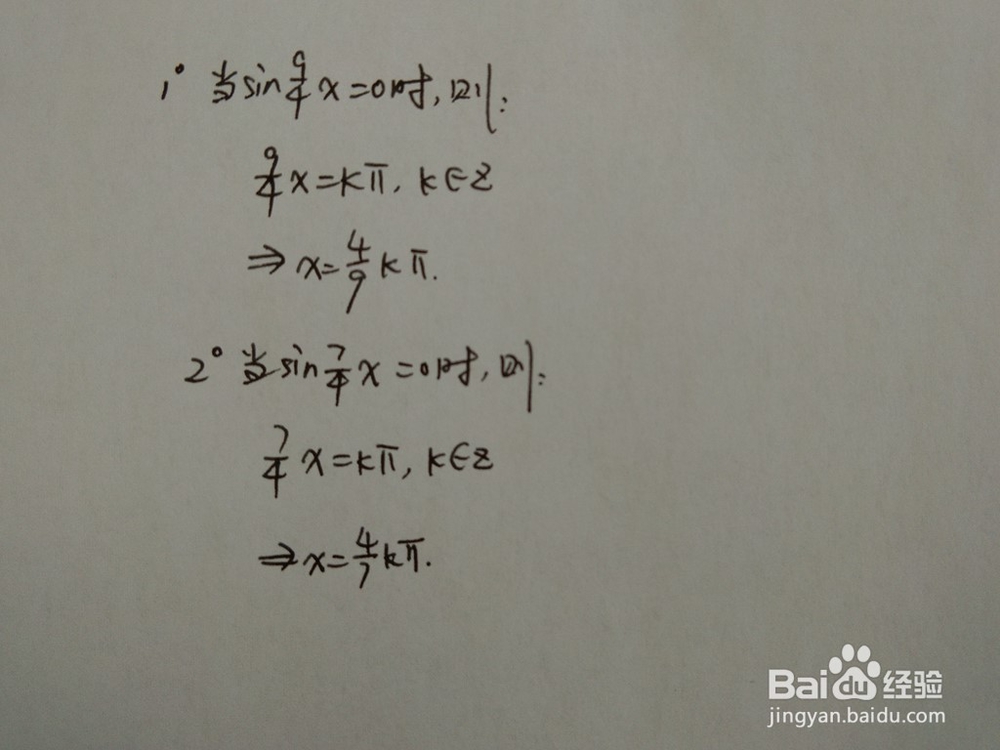 1° 当sin 9/4 x=0时,则:
9/4 x=kπ, k∈Z
⇒ x=4/9 kπ.
2° 当sin 7/4 x=0时,则:
7/4 x=kπ, k∈Z
⇒ x=4/7 kπ.
Baidu经验
jingyan.baidu.com